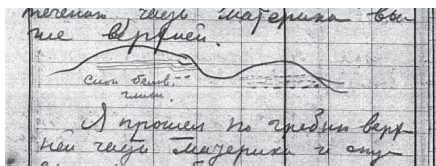 теченой часть материка вы-
ше верхней.
Слои белов.
глины.
Я прошел по гребню верх-
ней части материка и спу-